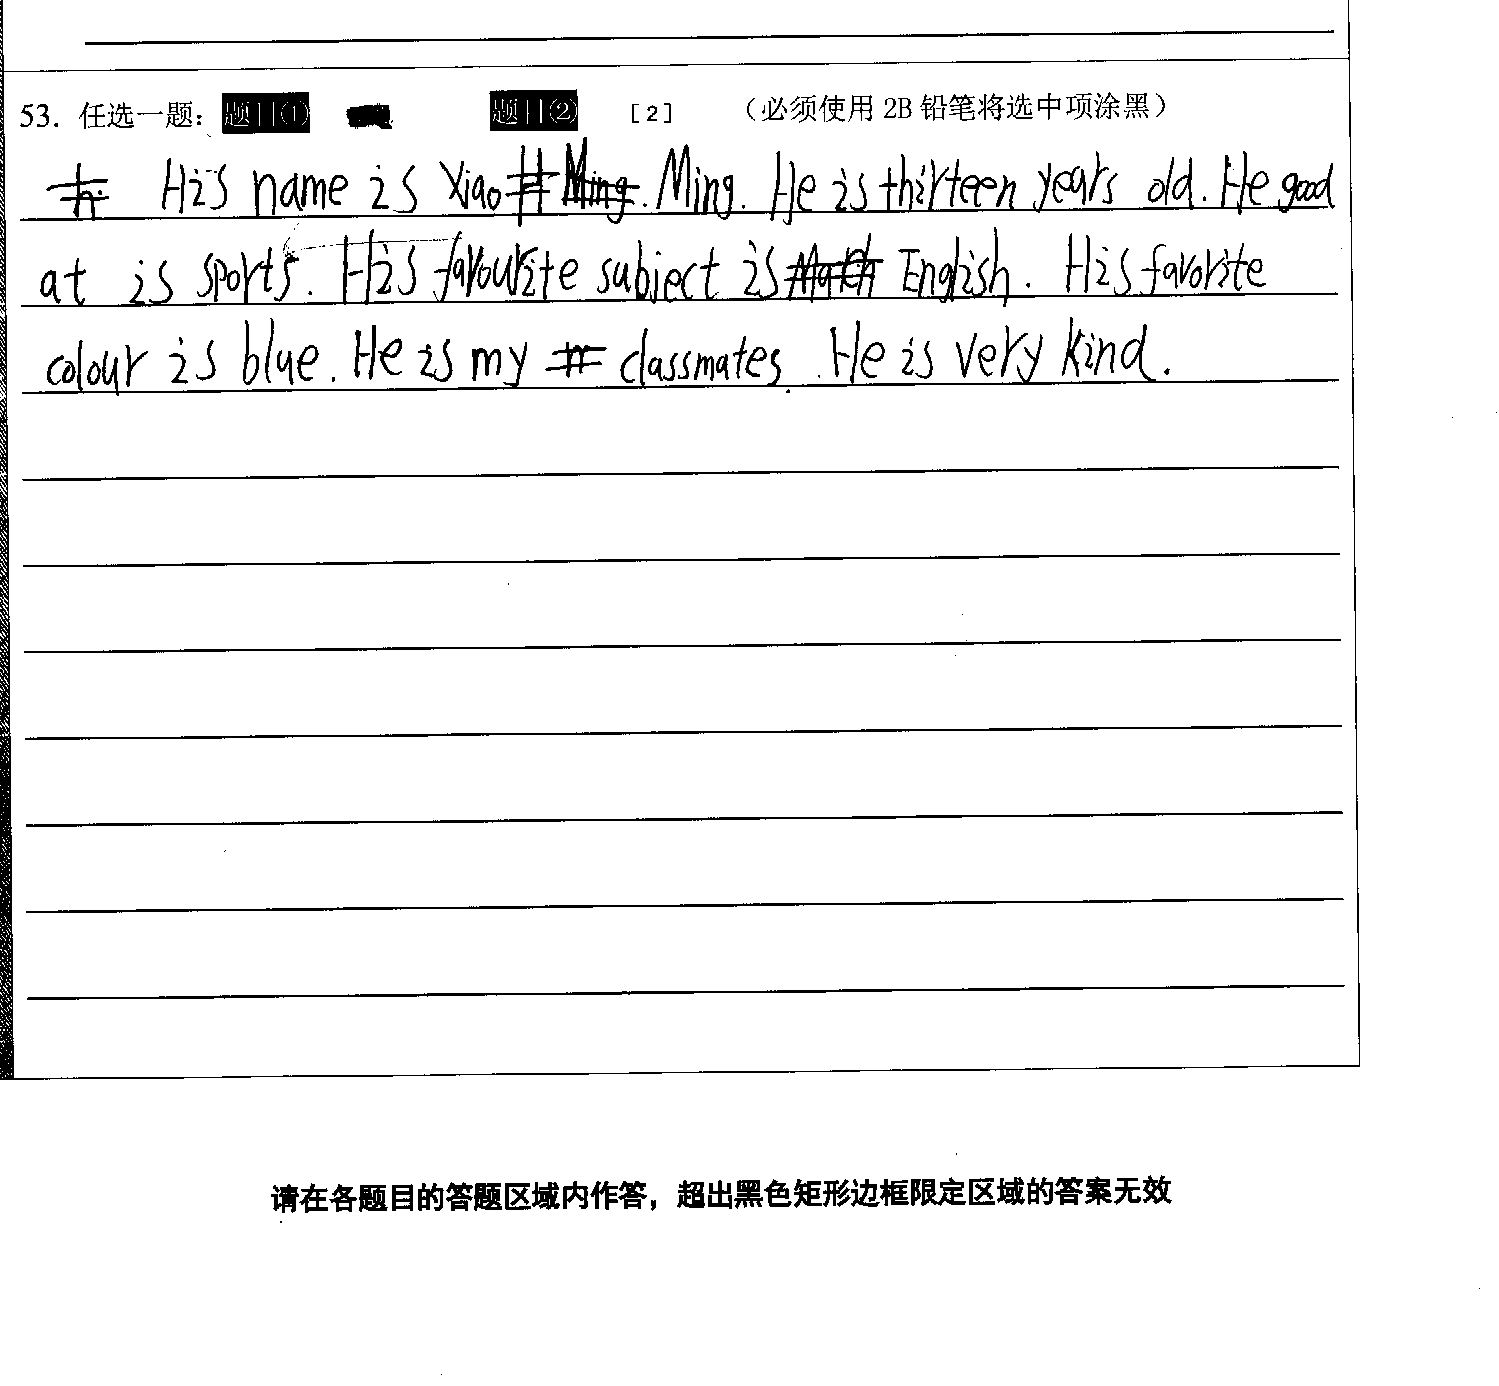 53. 任选一题: 题目① 题目② [2] (必须使用 2B 铅笔将选中项涂黑)
His name is Xiao Ming. He is thirteen years old. He good
at is sports. His favourite subject is English. His favorite
colour is blue. He is my classmates. He is very kind.
请在各题目的答题区域内作答，超出黑色矩形边框限定区域的答案无效